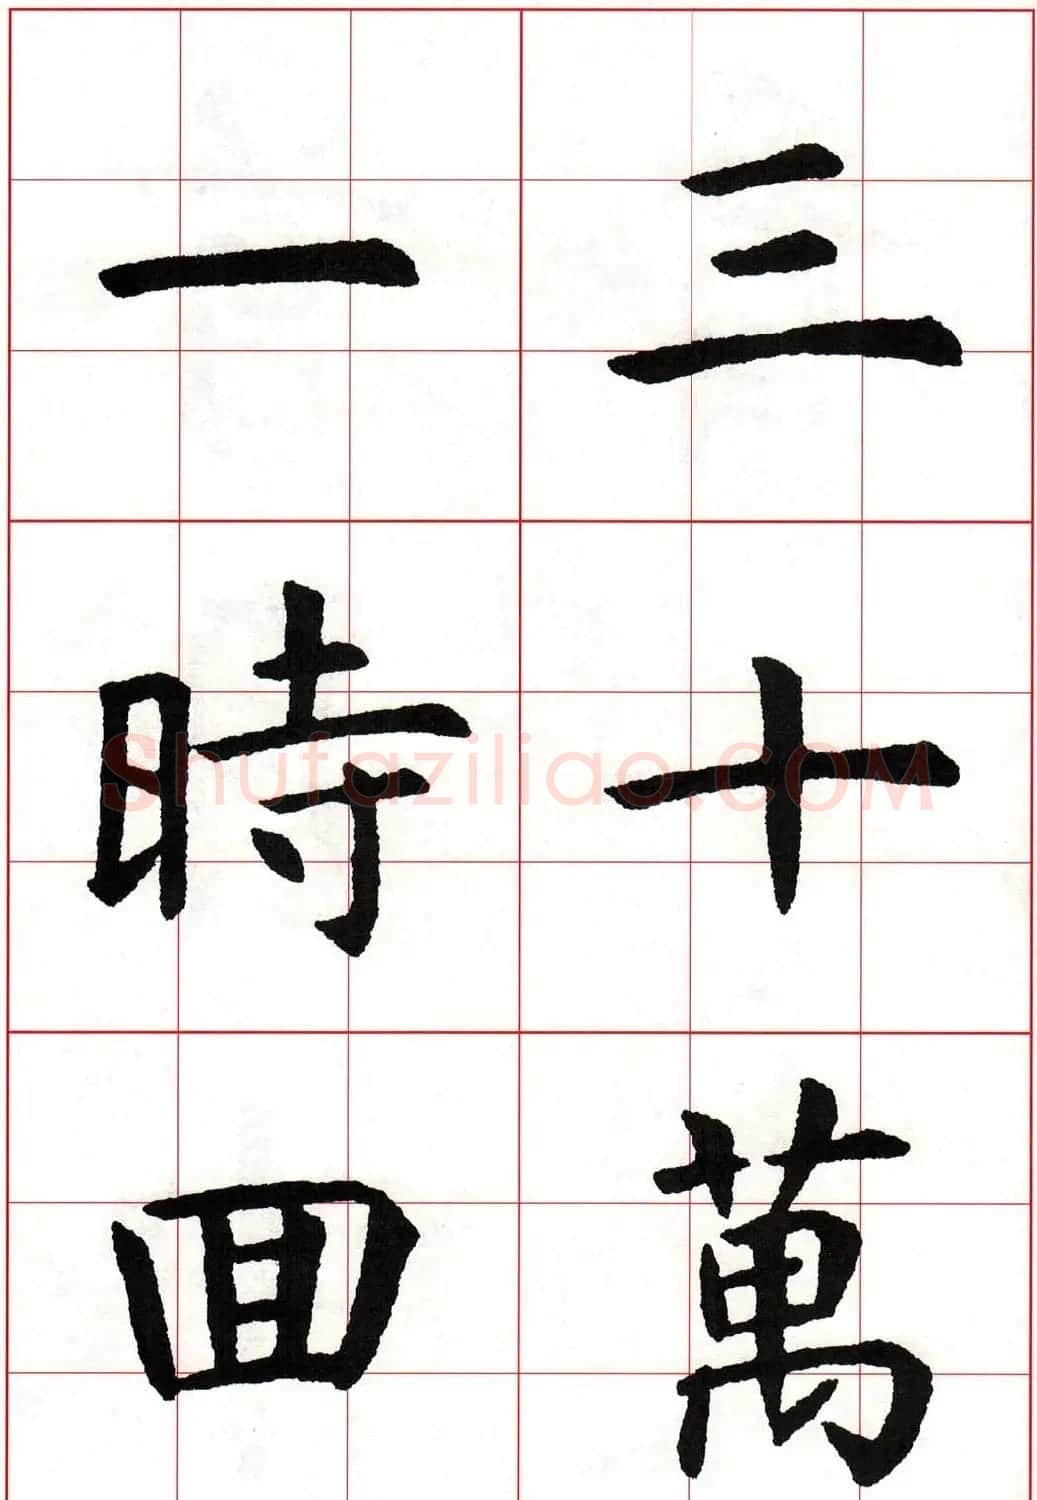 三十萬
一時囬
Shufaziliao.COM